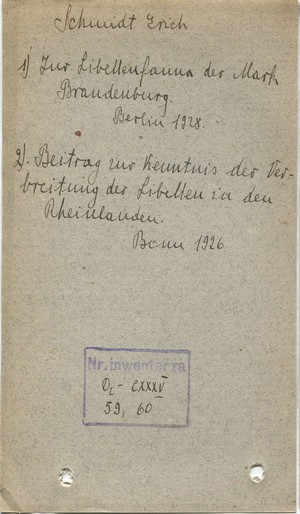 Schmidt Erich
1) Zur Libellenfauna der Mark
Brandenburg.
Berlin 1928.
2). Beitrag zur Kenntnis der Ver-
breitung der Libellen in den
Rheinlanden.
Bonn 1926
Nr. inwentarza
CXXXV
59, 60